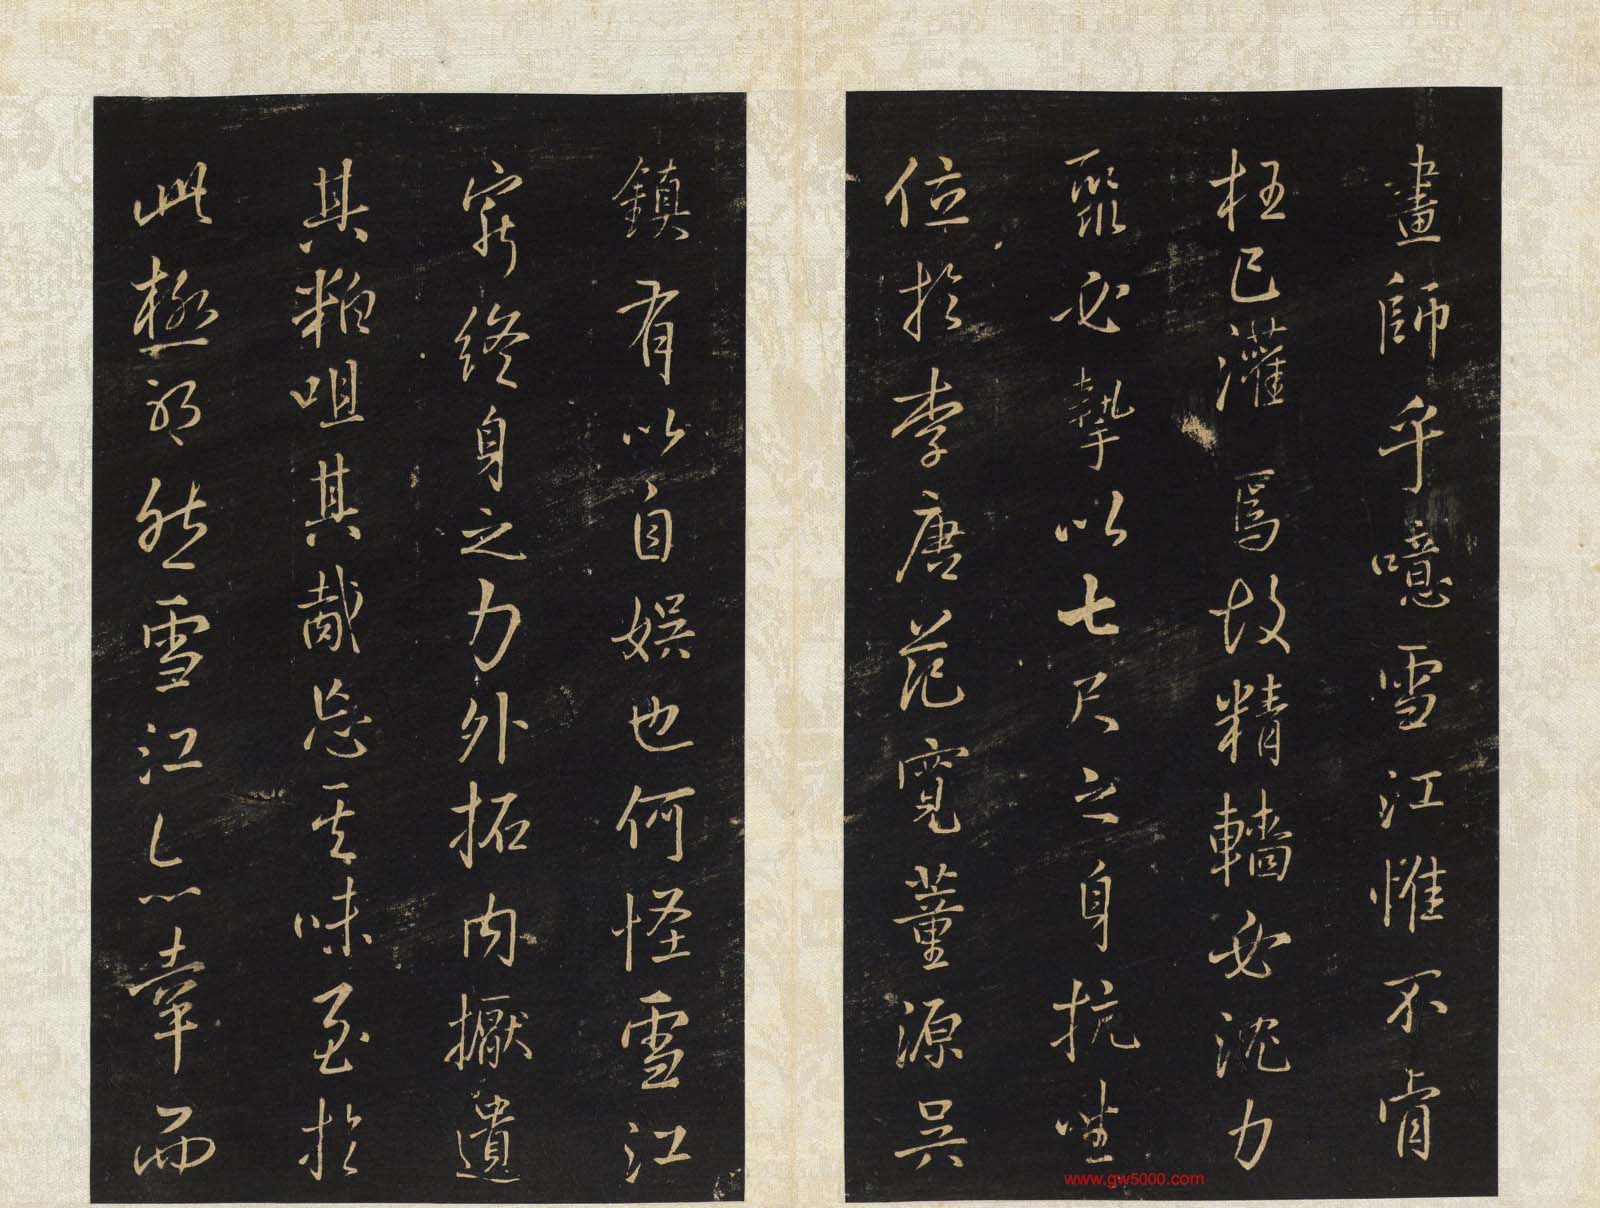 畫師乎噫雪江惟不肯
枉己灌焉故精轖必沈力
聚必摯以七尺之身抗坐
位於李唐范寬董源吳
鎮有以自娛也何怪雪江
窮終身之力外拓内擫遺
其粗咀其胾忘其味至於
此極邪然雪江亦幸而
www.gw5000.com